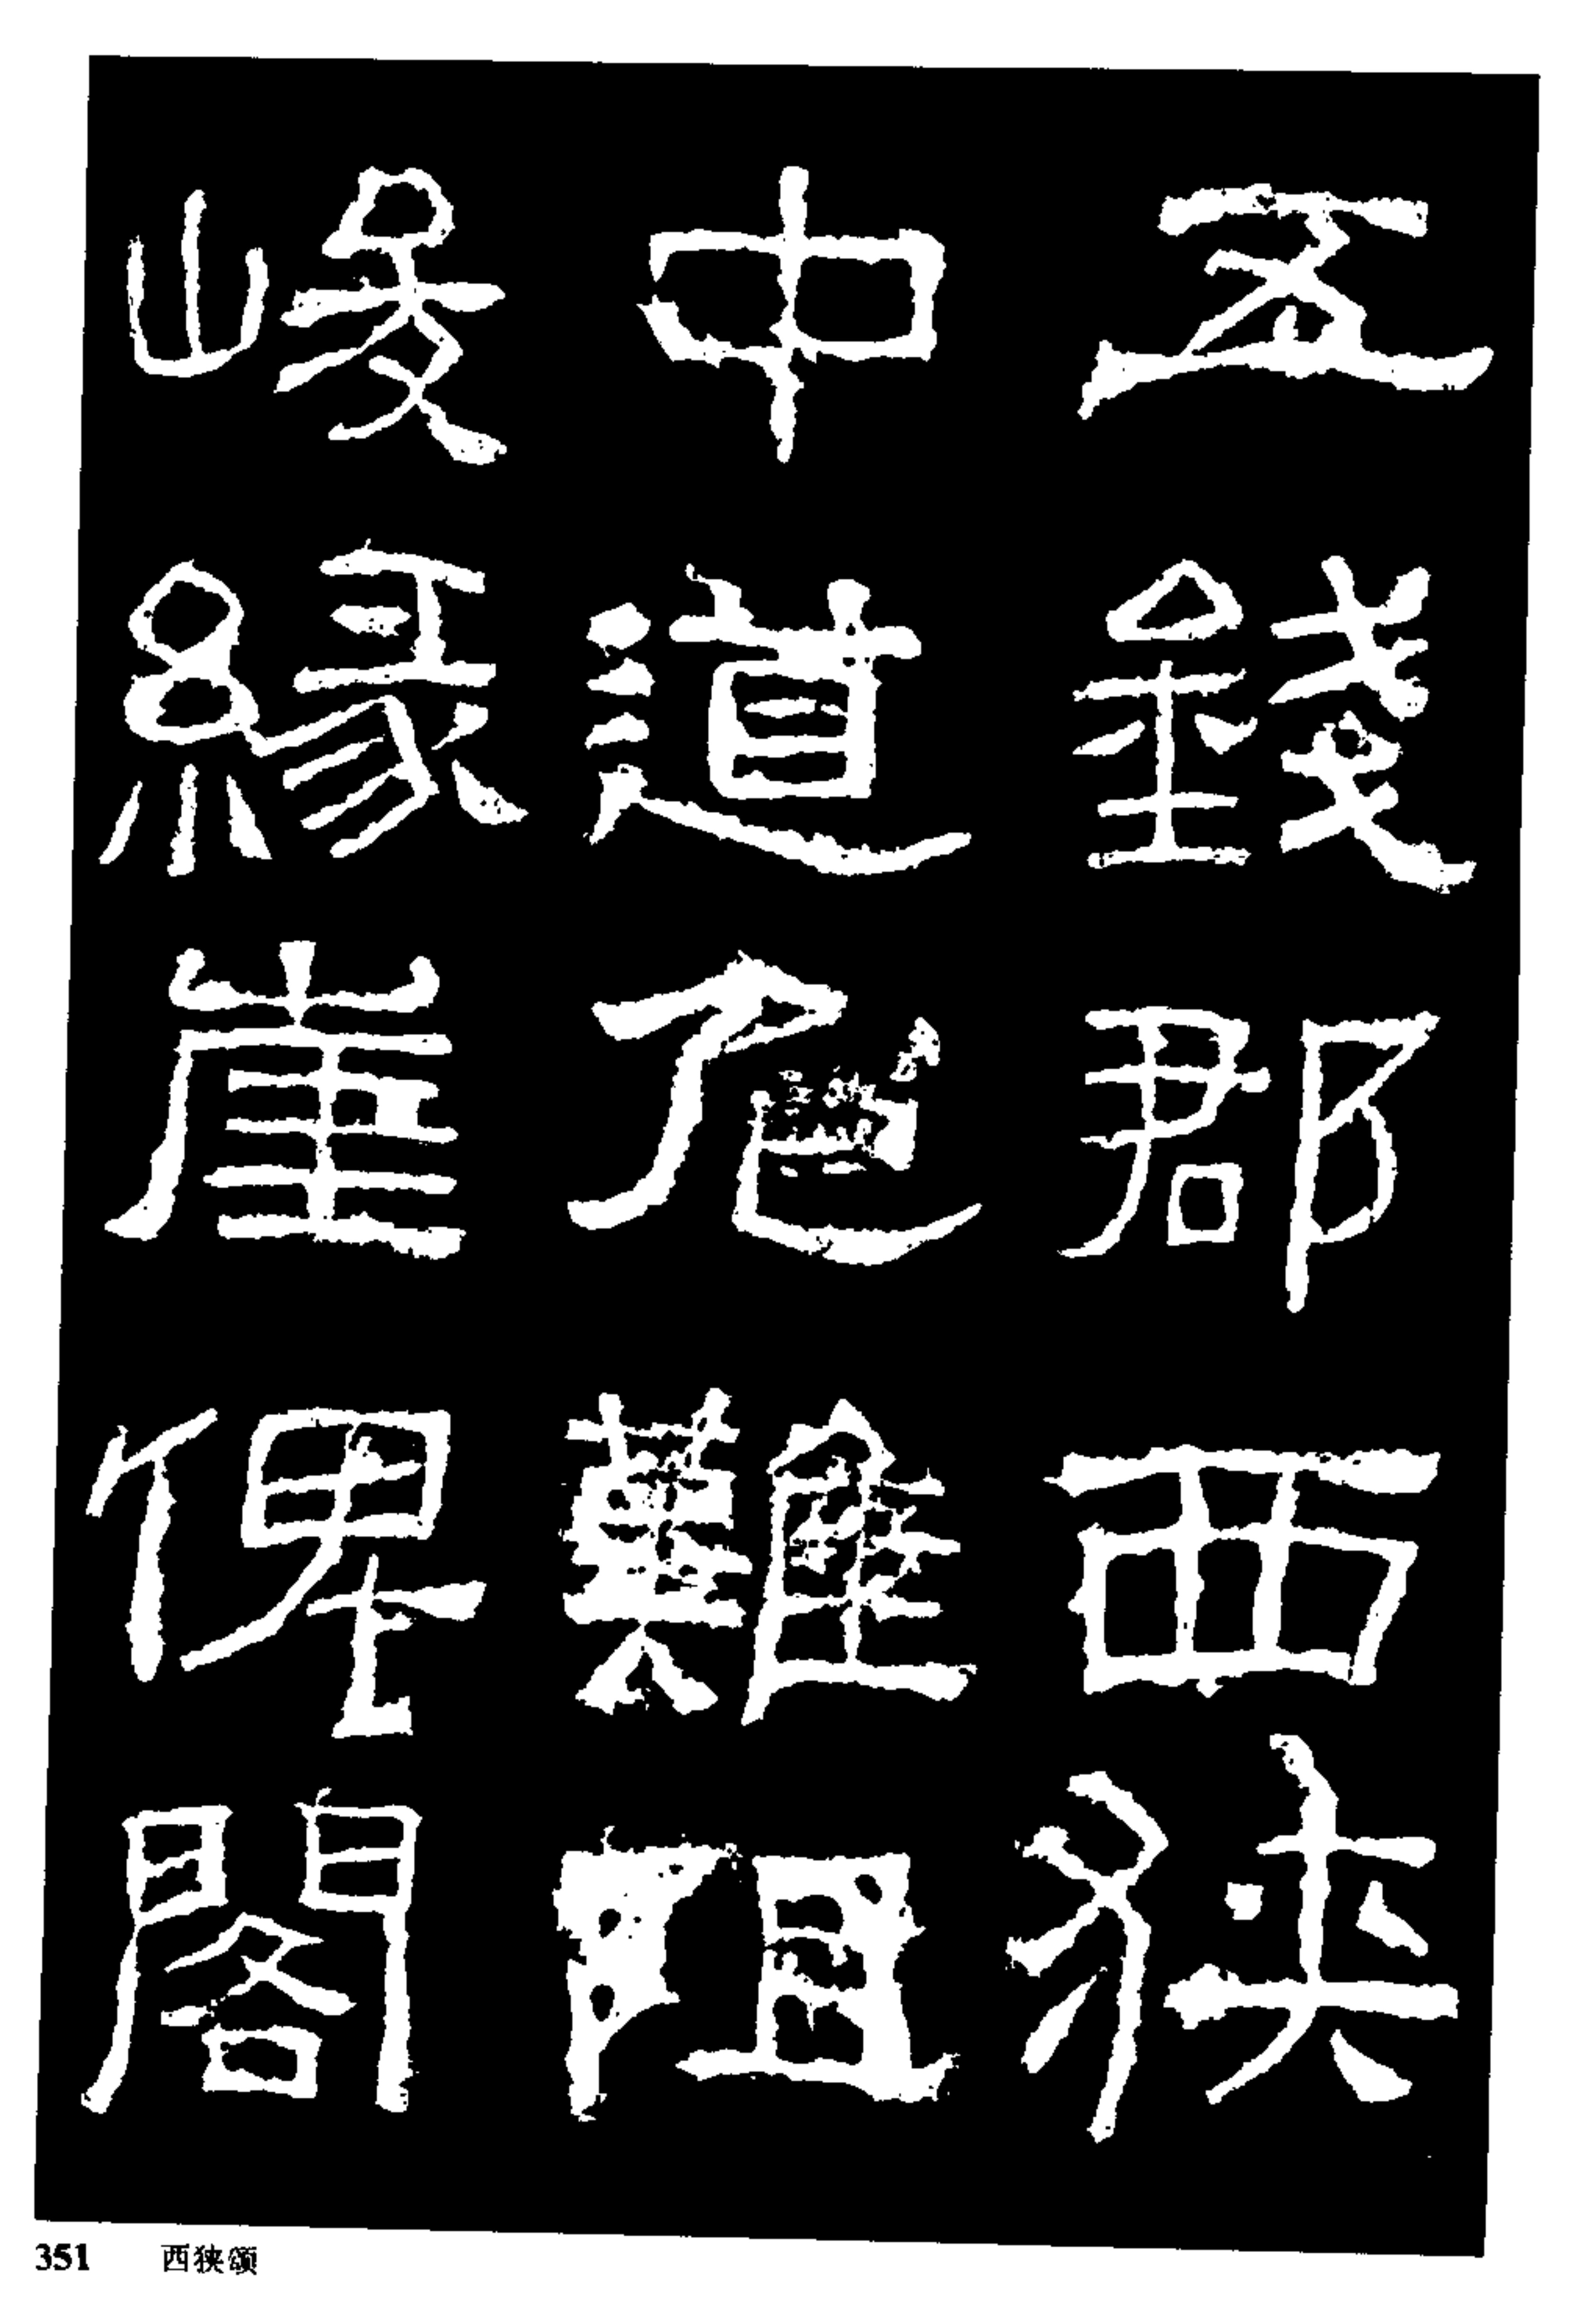 五錢郡西狹
中道危難阻
峻緣崖俾閣
351 西狭颂